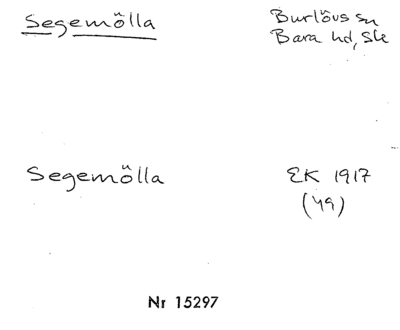 Segemölla
Burlövs sn
Bara hd, Ske
Segemölla
EK 1917
(49)
Nr 15297